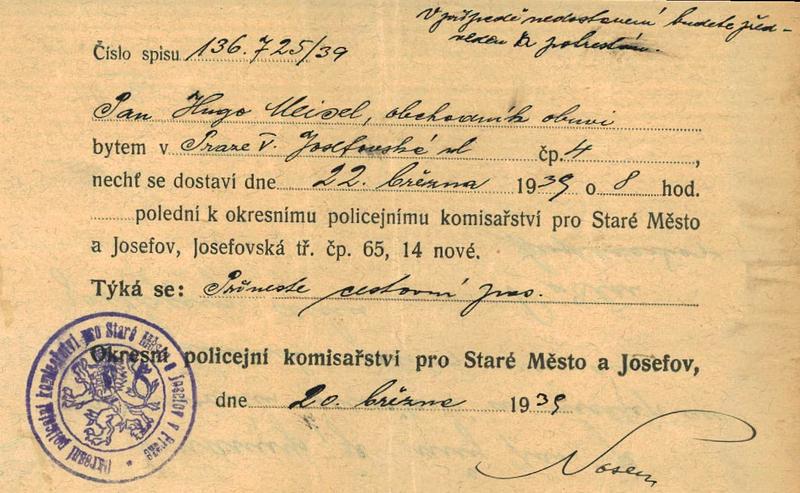 V případě nedostavení budete před-
veden a potrestán.
Číslo spisu 136.725/39
Pan Hugo Meisel, obchodník obuvi
bytem v Praze V. Josefovská ul čp. 4 ,
nechť se dostaví dne 22. března 1939 o 8 hod.
polední k okresnímu policejnímu komisařství pro Staré Město
a Josefov, Josefovská tř. čp. 65, 14 nové.
Týká se: Přineste cestovní pas.
Okresní policejní komisařství pro Staré Město a Josefov,
dne 20. března 1939
Okresní policejní komisařství pro Staré Město a Josefov v Praze